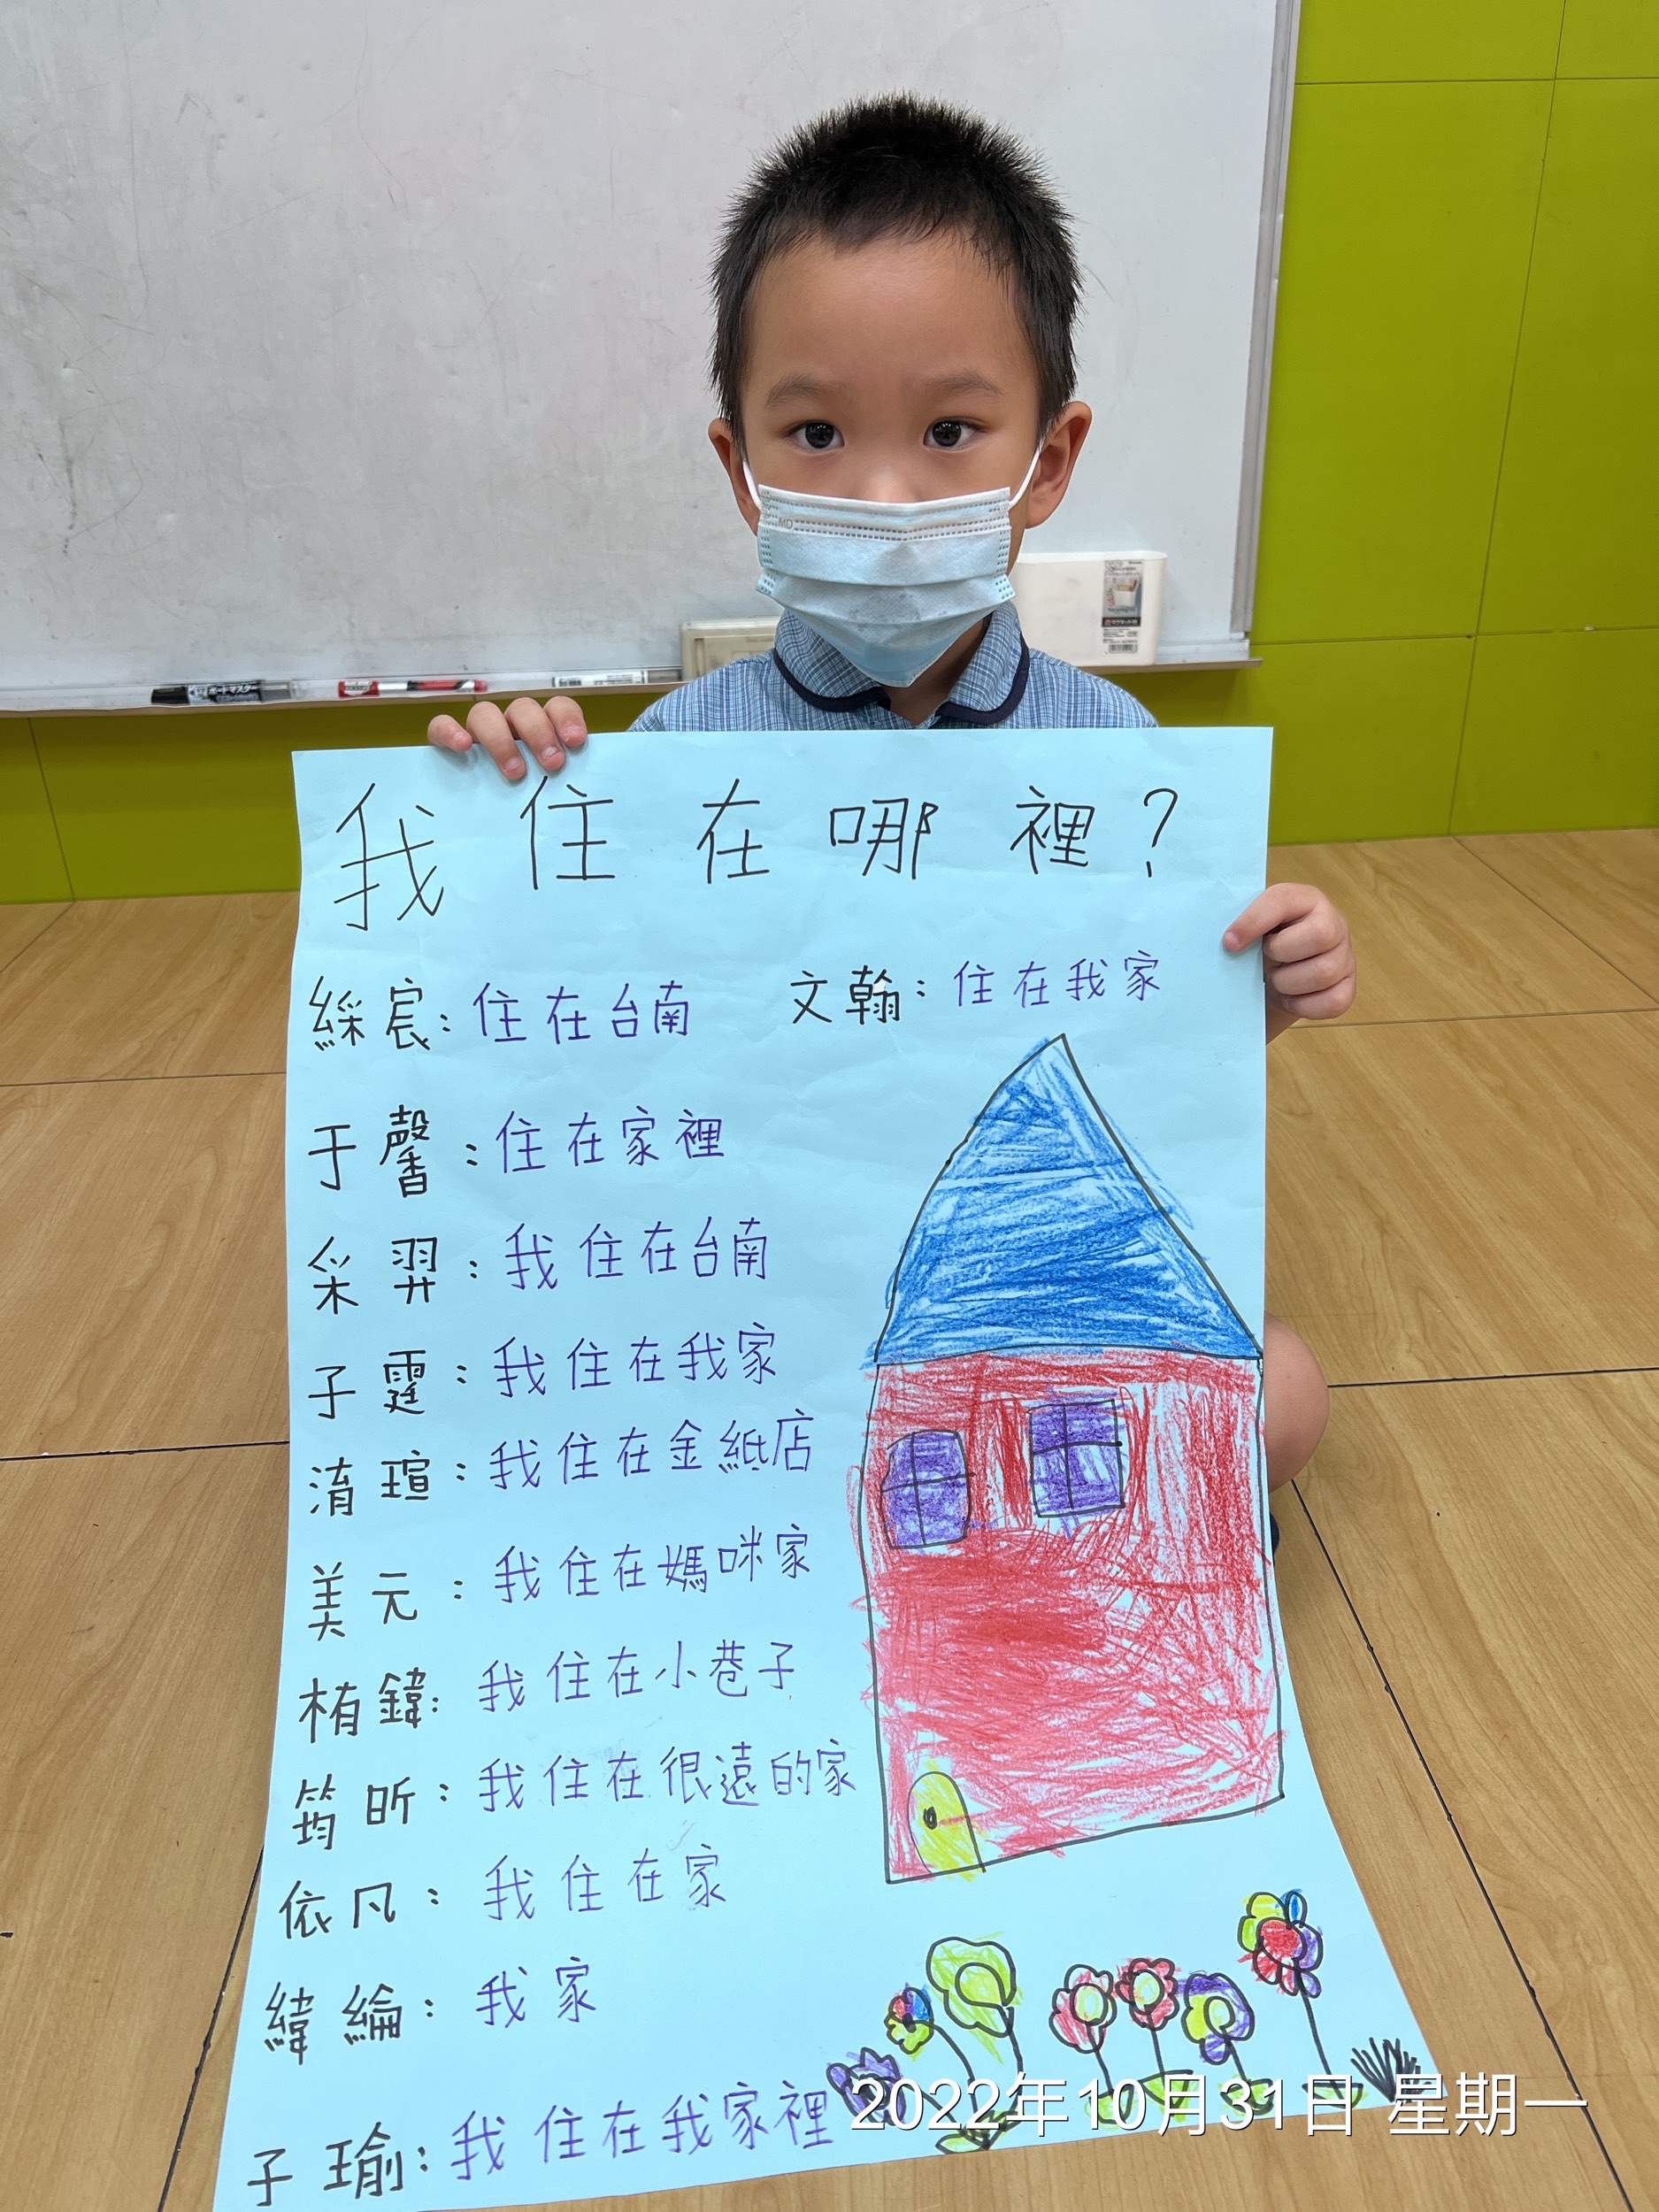 我住在哪裡？
綵宸：住在台南
文翰：住在我家
于馨：住在家裡
采羿：我住在台南
子霆：我住在我家
淯瑄：我住在金紙店
美元：我住在媽咪家
栯鍏：我住在小巷子
筠昕：我住在很遠的家
依凡：我住在家
緯綸：我家
子瑜：我住在我家裡
2022年10月31日 星期一